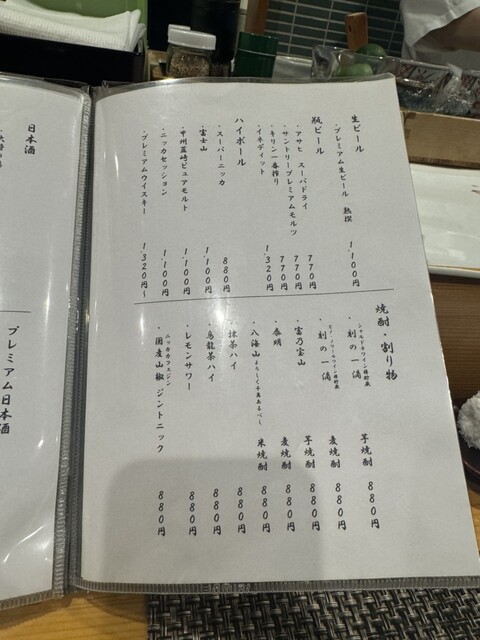 生ビール
・プレミアム生ビール 熟撰 1,100円
瓶ビール
・アサヒ スーパドライ 770円
・サントリープレミアムモルツ 770円
・キリン一番搾り 770円
・イネディット 1,320円
ハイボール
・スーパーニッカ 880円
・富士山 1,100円
・甲州韮崎ピュアモルト 1,100円
・ニッカセッション 1,100円
・プレミアムウイスキー 1,320円〜
焼酎・割り物
シャルドネワイン樽貯蔵
・刻の一滴 芋焼酎 880円
ピノ・ノワールワイン樽貯蔵
・刻の一滴 麦焼酎 880円
・富乃宝山 芋焼酎 880円
・泰明 麦焼酎 880円
・八海山 よろしく千萬あるべし 米焼酎 880円
・抹茶ハイ 880円
・烏龍茶ハイ 880円
・レモンサワー 880円
ニッカカフェジン
・国産山椒 ジントニック 880円
日本酒
プレミアム日本酒